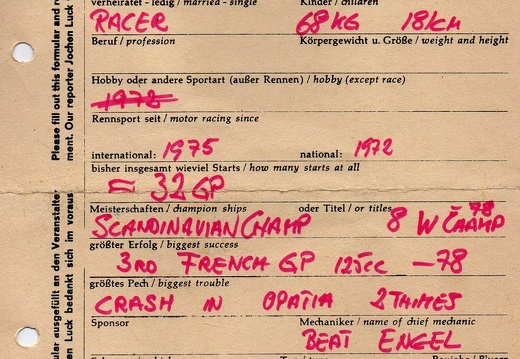 verheiratet - ledig / married - single
Kinder / children
RACER
68 KG 181CM
Beruf / profession
Körpergewicht u. Größe / weight and height
Hobby oder andere Sportart (außer Rennen) / hobby (except race)
1972
Rennsport seit / motor racing since
international: 1975
national: 1972
bisher insgesamt wieviel Starts / how many starts at all
≈ 32 GP
Meisterschaften / champion ships
oder Titel / or titles
78
SCANDINAVIAN CHAMP
8 W CHAMP
größter Erfolg / biggest success
3RD FRENCH GP 125CC -78
größtes Pech / biggest trouble
CRASH IN OPATIA 2 THIMES
Sponsor
Mechaniker / name of chief mechanic
BEAT ENGEL
Please fill out this formular and
ment. Our reporter Jochen Luck
ular ausgefüllt an den Veranstalter
en Luck bedankt sich im voraus